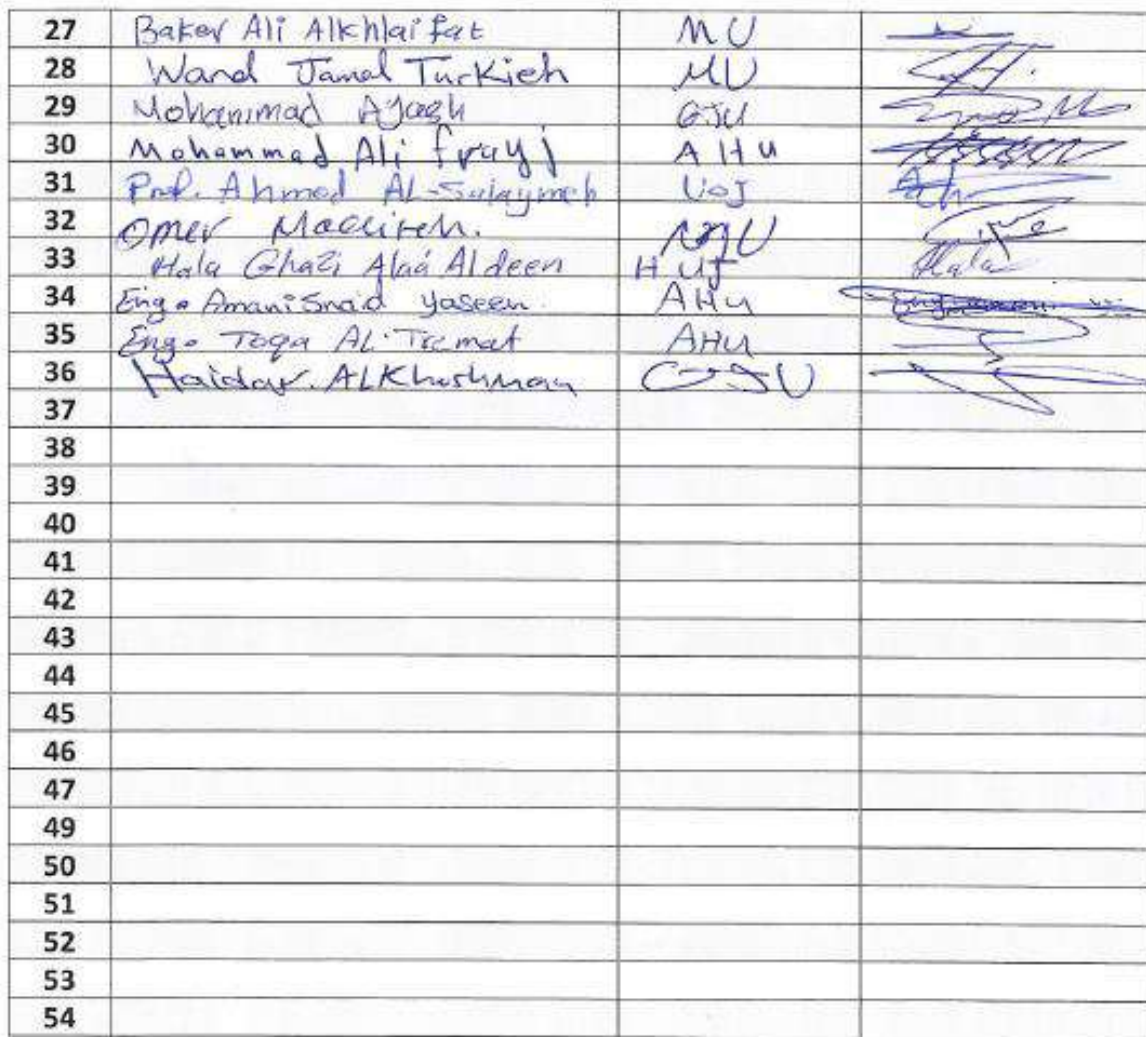 27 Baker Ali Alkhlaifat MU
28 Wand Jamal Turkieh MU
29 Mohammad Ayash GJU
30 Mohammad Ali frayj AHU
31 Prof. Ahmed AL-Salaymeh UoJ
32 Omer
33 Hala Ghazi Alaá Aldeen HUJ Hala
34 Eng. Amani Snaid Yaseen. AHU
35 Eng. Toqa AL. AHU
36 Haidar. ALKhushman GJU
37
38
39
40
41
42
43
44
45
46
47
49
50
51
52
53
54